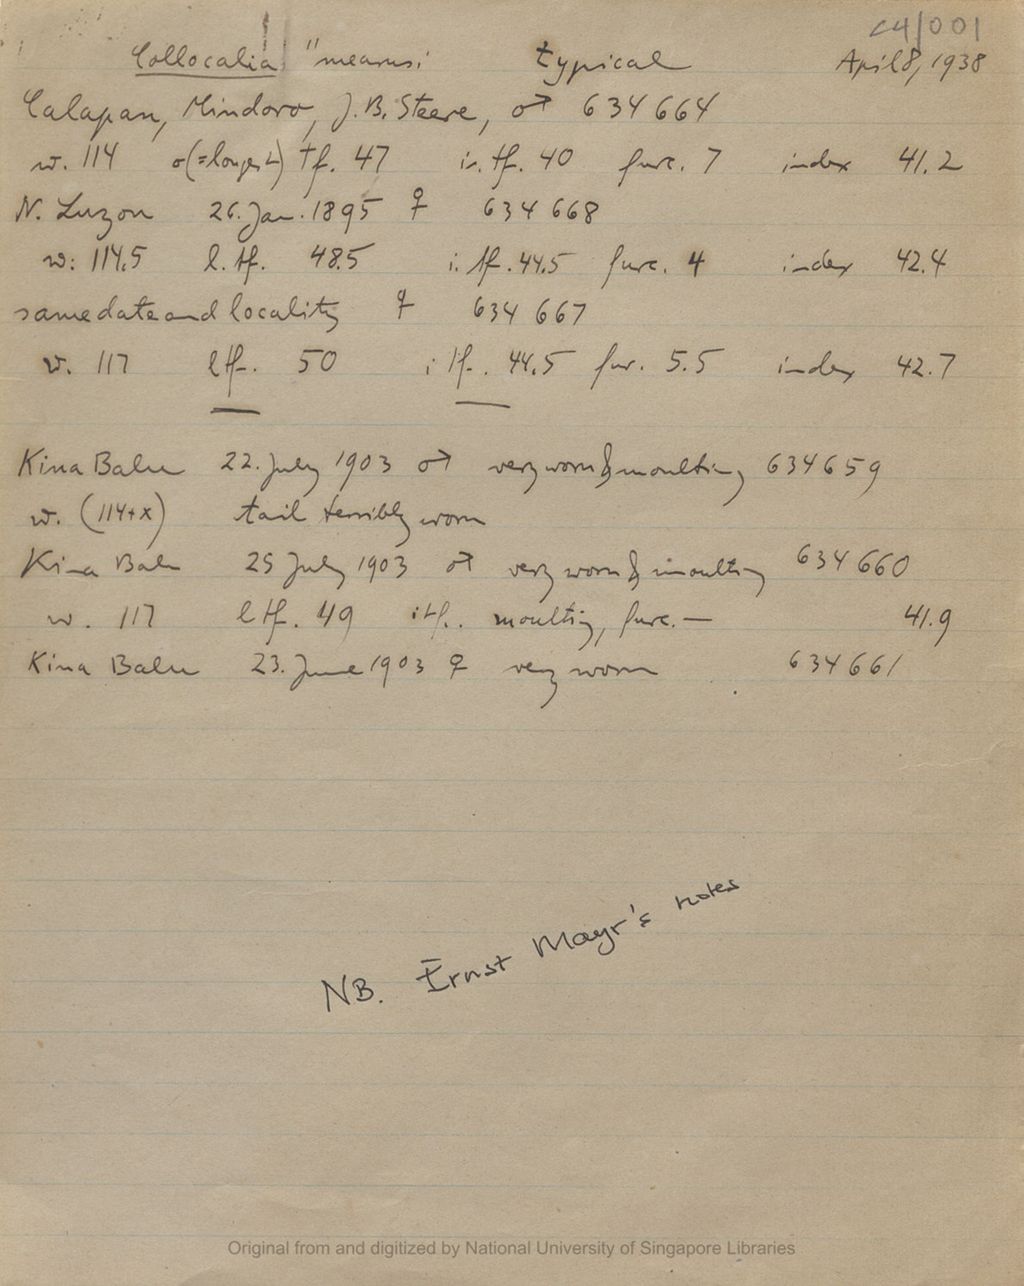 C4/001
Collocalia "means: typical April 8, 1938
Calapan, Mindoro, J.B. Steere, ♂ 634664
w. 114 o(=longest) tf. 47 in. tf. 40 furc. 7 index 41.2
N. Luzon 26. Jan. 1895 ♀ 634 668
w: 114.5 l. tf. 48.5 i. tf. 44.5 furc. 4 index 42.4
same date and locality ♀ 634 667
w. 117 l tf. 50 i tf. 44.5 fur. 5.5 index 42.7
Kina Balu 22. July 1903 ♂ very worn & moulting 634659
w. (114+x) tail terribly worn
Kina Balu 25 July 1903 ♂ very worn & moulting 634 660
w. 117 l tf. 49 i tf. moulting, furc. — 41.9
Kina Balu 23. June 1903 ♀ very worn 634661
NB. Ernst Mayr's notes
Original from and digitized by National University of Singapore Libraries